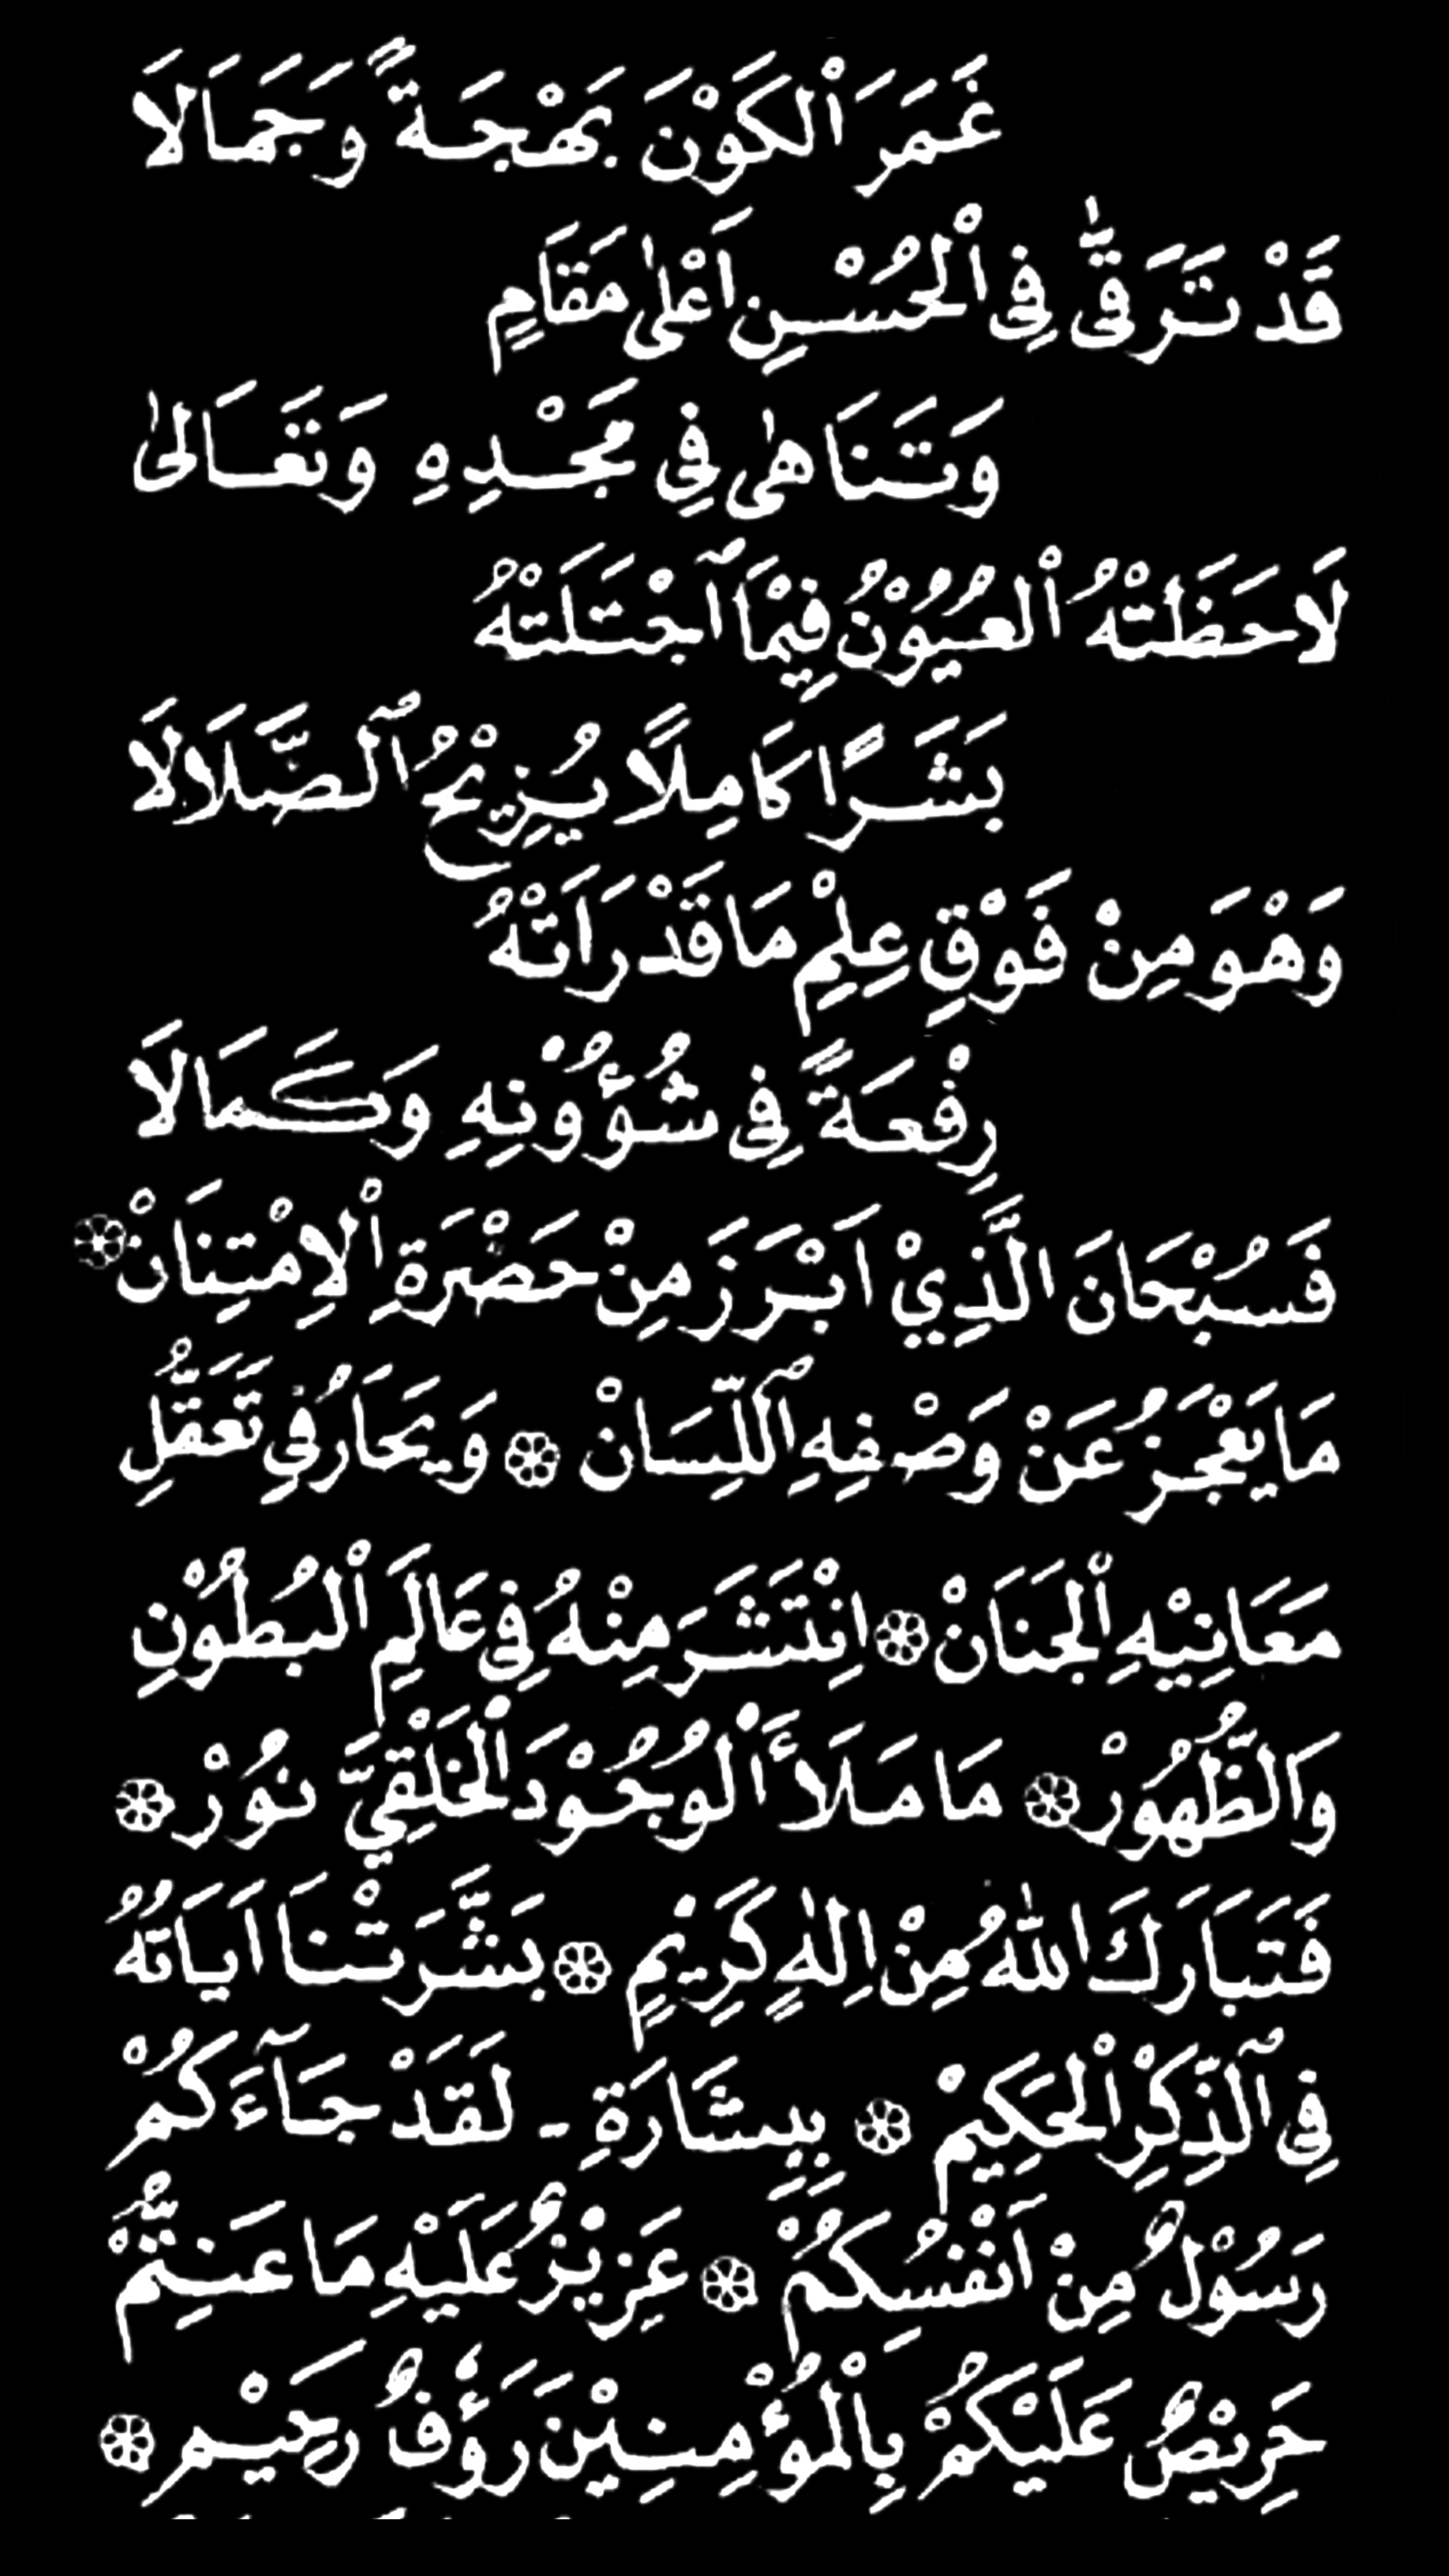 غَمَرَ اْلكَوْنَ بَهْجَةً وَجَمَالَا
قَدْ تَرَقّٰى فِى اْلحُسْنِ اَعْلٰى مَقَامِ
وَتَنَاهٰى فِي مَجْدِهِ وَتَعَالىٰ
لَاحَظَتْهُ اْلعُيُوْنُ فِيْمَا ٱجْتَلَتْهُ
بَشَرًا كَامِلًا يُزِيْحُ ٱلضَّلَالَا
وَهْوَ مِنْ فَوْقِ عِلْمِ مَا قَدْ رَاَتْهُ
رِفْعَةً فِى شُؤُوْنِهِ وَكَمَالَا
فَسُبْحَانَ الَّذِيْ اَبْرَزَ مِنْ حَضْرَةِ اْلاِمْتِنَانْ ۞
مَا يَعْجَزُ عَنْ وَصْفِهِ ٱللِّسَانْ ۞ وَيَحَارُ فِي تَعَقُّلِ
مَعَانِيْهِ اْلجَنَانْ ۞ اِنْتَشَرَ مِنْهُ فِى عَالَمِ اْلبُطُوْنِ
وَالظُّهُوْرْ ۞ مَا مَلَأَ اْلوُجُوْدَ اْلخَلْقِيَّ نُوْرْ ۞
فَتَبَارَكَ اللّٰهُ مِنْ اِلٰهٍ كَرِيْمٍ ۞ بَشَّرَتْنَا اَيَاتُهُ
فِى ٱلذِّكْرِ اْلحَكِيْمِ ۞ بِبِشَارَةِ - لَقَدْ جَآءَكُمْ
رَسُوْلٌ مِنْ اَنْفُسِكُمْ ۞ عَزِيْزٌ عَلَيْهِ مَا عَنِتُّمْ
حَرِيْصٌ عَلَيْكُمْ بِاْلمُؤْمِنِيْنَ رَؤُفٌ رَحِيْم ۞